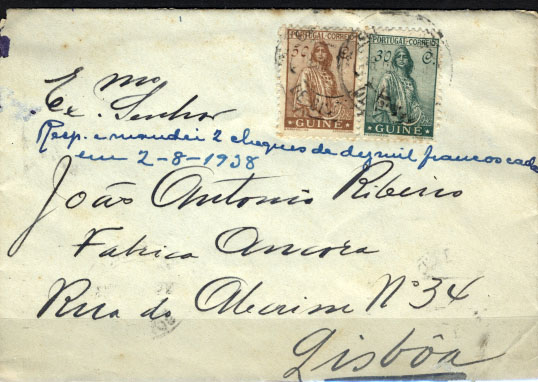 PORTUGAL-CORREIO PORTUGAL-CORREIO
50 C. 30 C.
GUINÉ GUINÉ
Ex.mo
Senhor
Resp. e mandei 2 cheques de dez mil francos cada
em 2-8-1938
João Antonio Ribeiro
Fabrica Ancora
Rua do Alecrim Nº 34
Lisbôa